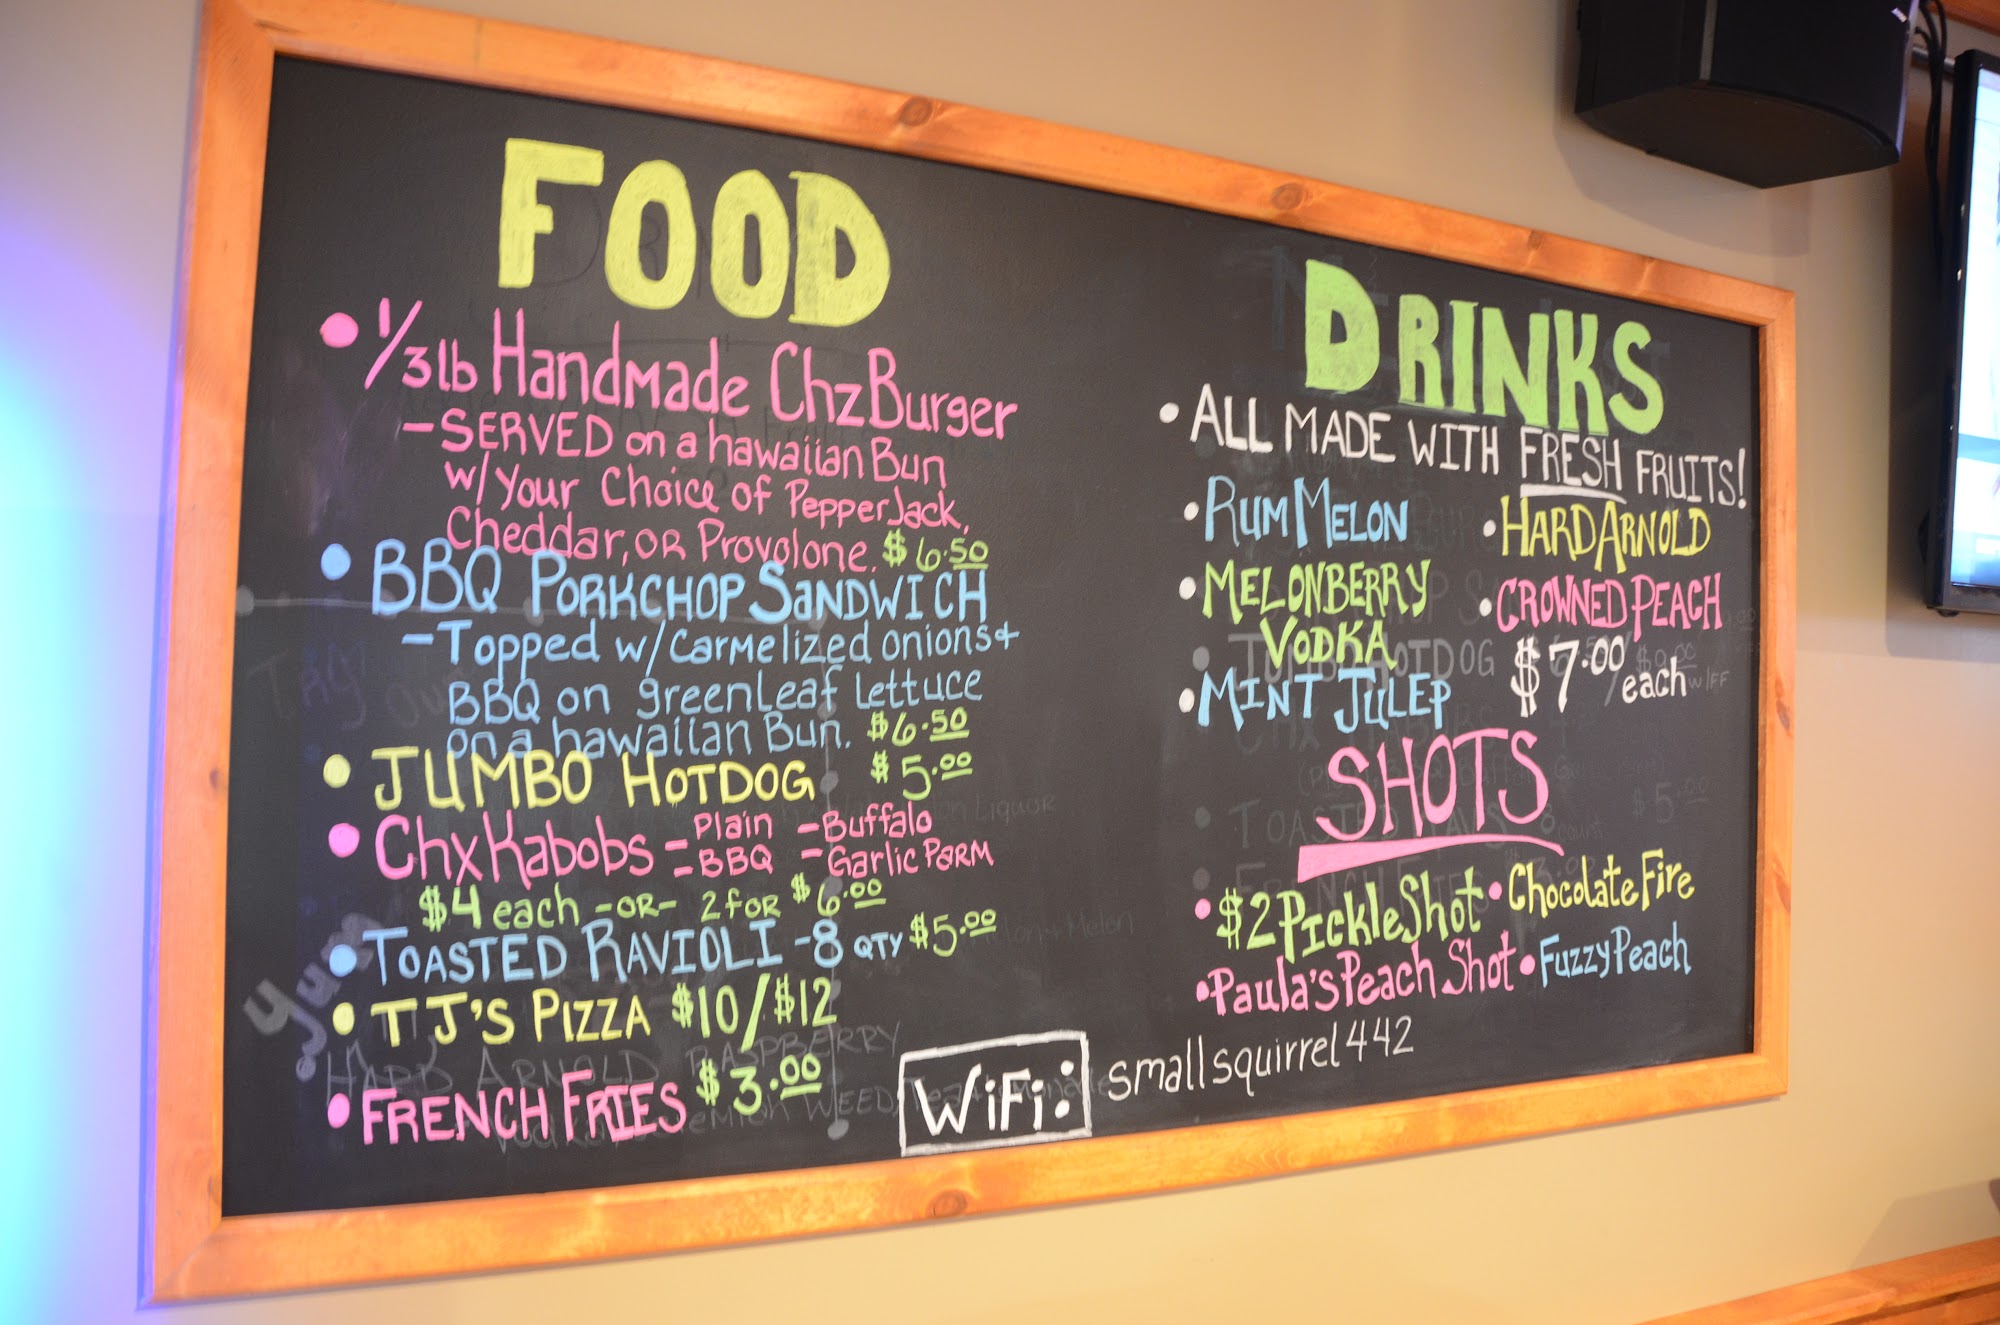 FOOD
• 1/3 lb Handmade ChzBurger
- SERVED on a hawaiian Bun
w/ Your Choice of PepperJack,
Cheddar, OR Provolone. $6.50
• BBQ PORKCHOP SANDWICH
- Topped w/ carmelized onions +
BBQ on greenleaf lettuce
on a hawaiian Bun. $6.50
• JUMBO HOTDOG $5.00
• Chx Kabobs - Plain - Buffalo
- BBQ - Garlic Parm
$4 each -OR- 2 for $6.00
• TOASTED RAVIOLI - 8 QTY $5.00
• TJ'S PIZZA $10/$12
• FRENCH FRIES $3.00
DRINKS
• ALL MADE WITH FRESH FRUITS!
• RUM MELON
• MELONBERRY
VODKA
• MINT JULEP
• HARD ARNOLD
• CROWNED PEACH
$7.00 each
SHOTS
• $2 PickleShot • Chocolate Fire
• Paula's Peach Shot • Fuzzy Peach
WiFi: smallsquirrel442